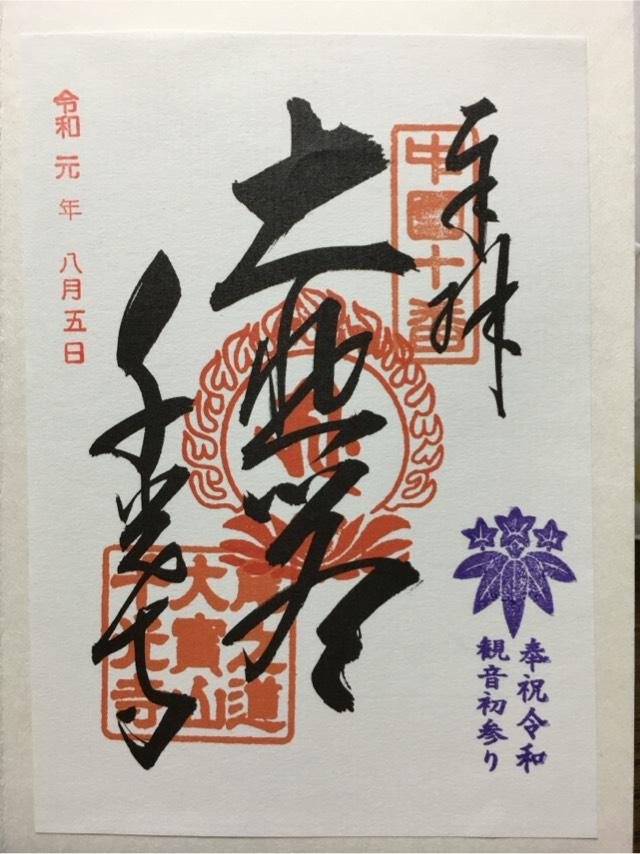 奉拝
中國十番
千光寺
尾之道
大寳山
千光寺
令和元年八月五日
奉祝令和
観音初参り